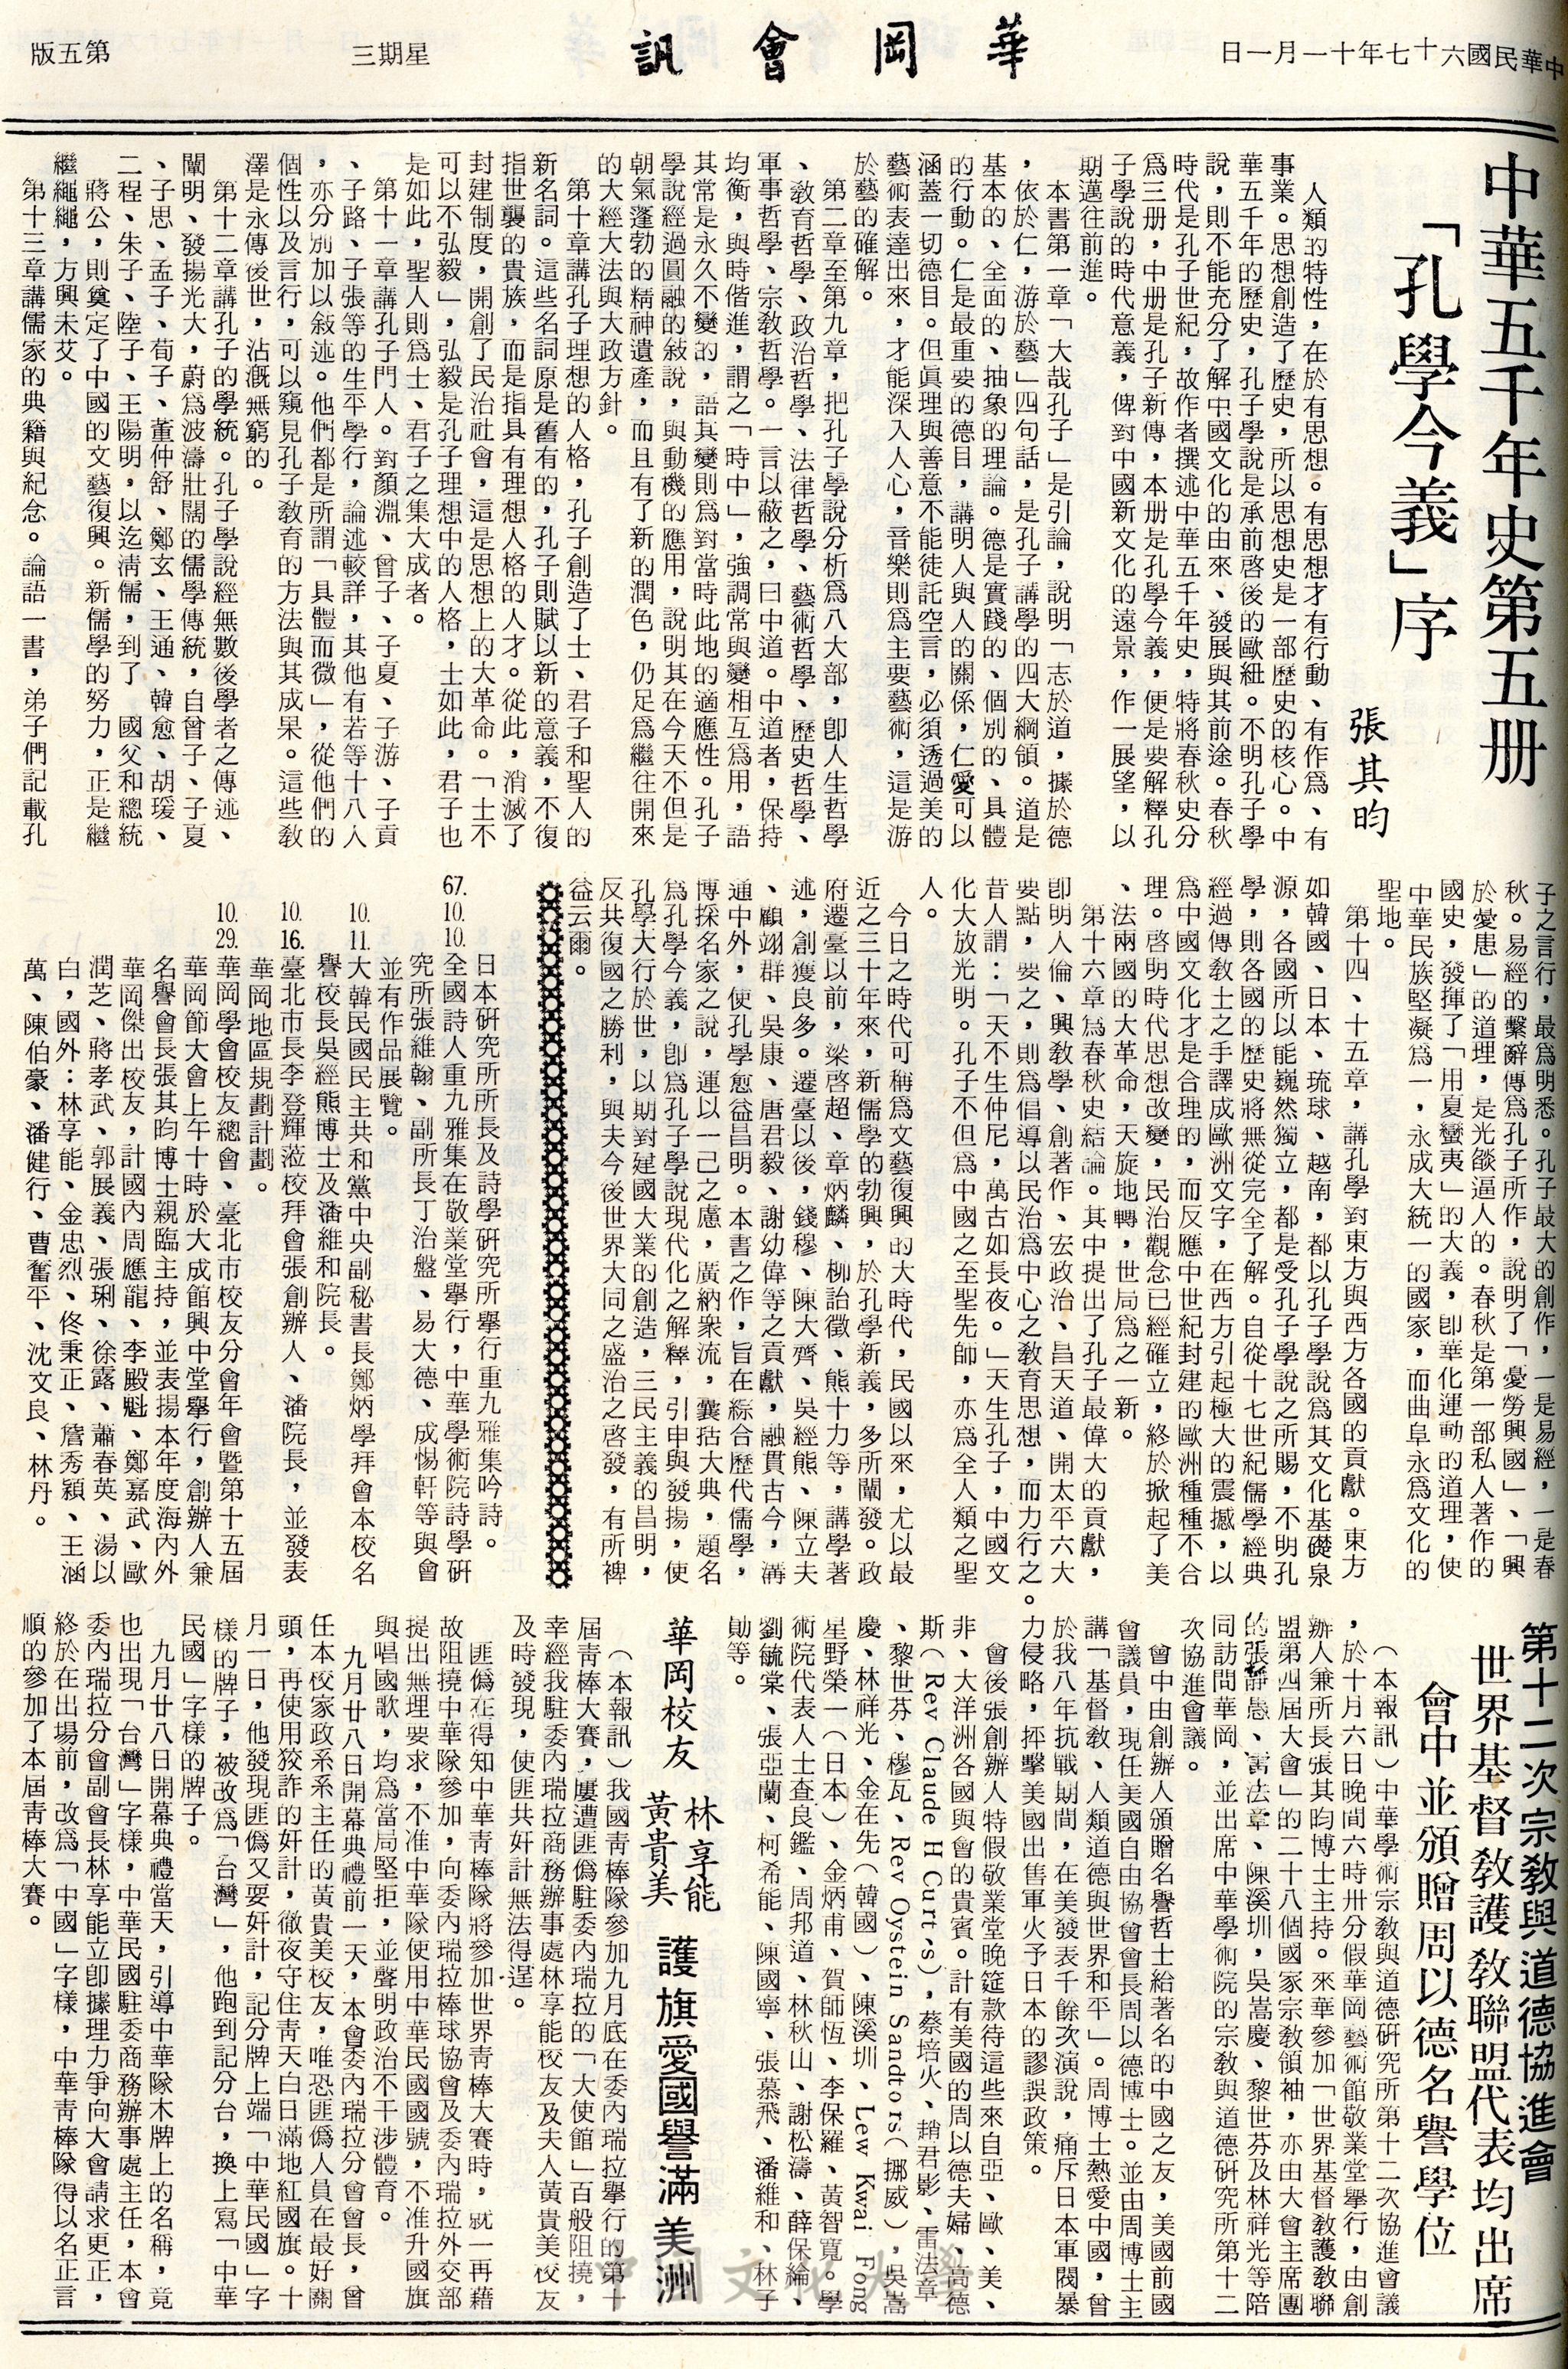 中華民國六十七年十一月一日
華岡會訊
星期三
第五版
中華五千年史第五册
「孔學今義」序
張其昀
人類的特性，在於有思想。有思想才有行動、有作爲、有
事業。思想創造了歷史，所以思想史是一部歷史的核心。中
華五千年的歷史，孔子學說是承前啓後的歐紐。不明孔子學
說，則不能充分了解中國文化的由來、發展與其前途。春秋
時代是孔子世紀，故作者撰述中華五千年史，特將春秋史分
爲三册，中册是孔子新傳，本册是孔學今義，便是要解釋孔
子學說的時代意義，俾對中國新文化的遠景，作一展望，以
期邁往前進。
本書第一章「大哉孔子」是引論，說明「志於道，據於德
，依於仁，游於藝」四句話，是孔子講學的四大綱領。道是
基本的、全面的、抽象的理論。德是實踐的、個別的、具體
的行動。仁是最重要的德目，講明人與人的關係，仁愛可以
涵蓋一切德目。但眞理與善意不能徒託空言，必須透過美的
藝術表達出來，才能深入人心，音樂則爲主要藝術，這是游
於藝的確解。
第二章至第九章，把孔子學說分析爲八大部，卽人生哲學
、教育哲學、政治哲學、法律哲學、藝術哲學、歷史哲學、
軍事哲學、宗教哲學。一言以蔽之，曰中道。中道者，保持
均衡，與時偕進，謂之「時中」，強調常與變相互爲用，語
其常是永久不變的，語其變則爲對當時此地的適應性。孔子
學說經過圓融的敍說，與動機的應用，說明其在今天不但是
朝氣蓬勃的精神遺產，而且有了新的潤色，仍足爲繼往開來
的大經大法與大政方針。
第十章講孔子理想的人格，孔子創造了士、君子和聖人的
新名詞。這些名詞原是舊有的，孔子則賦以新的意義，不復
指世襲的貴族，而是指具有理想人格的人才。從此，消滅了
封建制度，開創了民治社會，這是思想上的大革命。「士不
可以不弘毅」，弘毅是孔子理想中的人格，士如此，君子也
是如此，聖人則爲士、君子之集大成者。
第十一章講孔子門人。對顏淵、曾子、子夏、子游、子貢
、子路、子張等的生平學行，論述較詳，其他有若等十八人
，亦分別加以敍述。他們都是所謂「具體而微」，從他們的
個性以及言行，可以窺見孔子教育的方法與其成果。這些教
澤是永傳後世，沾漑無窮的。
第十二章講孔子的學統。孔子學說經無數後學者之傳述、
闡明、發揚光大，蔚爲波濤壯闊的儒學傳統，自曾子、子夏
、子思、孟子、荀子、董仲舒、鄭玄、王通、韓愈、胡瑗、
二程、朱子、陸子、王陽明，以迄清儒，到了　國父和總統
蔣公，則奠定了中國的文藝復興。新儒學的努力，正是繼
繼繩繩，方興未艾。
第十三章講儒家的典籍與紀念。論語一書，弟子們記載孔
子之言行，最爲明悉。孔子最大的創作，一是易經，一是春
秋。易經的繫辭傳爲孔子所作，說明了「憂勞興國」、「興
於憂患」的道理，是光燄逼人的。春秋是第一部私人著作的
國史，發揮了「用夏蠻夷」的大義，卽華化運動的道理，使
中華民族堅凝爲一，永成大統一的國家，而曲阜永爲文化的
聖地。
第十四、十五章，講孔學對東方與西方各國的貢獻。東方
如韓國、日本、琉球、越南，都以孔子學說爲其文化基礎泉
源，各國所以能巍然獨立，都是受孔子學說之所賜，不明孔
學，則各國的歷史將無從完全了解。自從十七世紀儒學經典
經過傳教士之手譯成歐洲文字，在西方引起極大的震撼，以
爲中國文化才是合理的，而反應中世紀封建的歐洲種種不合
理。啓明時代思想改變，民治觀念已經確立，終於掀起了美
、法兩國的大革命，天旋地轉，世局爲之一新。
第十六章爲春秋史結論。其中提出了孔子最偉大的貢獻，
卽明人倫、興教學、創著作、宏政治、昌天道、開太平六大
要點，要之，則爲倡導以民治爲中心之教育思想，而力行之。
昔人謂：「天不生仲尼，萬古如長夜。」天生孔子，中國文
化大放光明。孔子不但爲中國之至聖先師，亦爲全人類之聖
人。
今日之時代可稱爲文藝復興的大時代，民國以來，尤以最
近之三十年來，新儒學的勃興，於孔學新義，多所闡發。政
府遷臺以前，梁啓超、章炳麟、柳詒徵、熊十力等，講學著
述，創獲良多。遷臺以後，錢穆、陳大齊、吳經熊、陳立夫
、顧翊群、吳康、唐君毅、謝幼偉等之貢獻，融貫古今，溝
通中外，使孔學愈益昌明。本書之作，旨在綜合歷代儒學，
博採名家之說，運以一己之慮，廣納衆流，囊括大典，題名
爲孔學今義，卽爲孔子學說現代化之解釋，引申與發揚，使
孔學大行於世，以期對建國大業的創造，三民主義的昌明，
反共復國之勝利，與夫今後世界大同之盛治之啓發，有所裨
益云爾。
日本硏究所所長及詩學硏究所舉行重九雅集吟詩。
67.10.10.全國詩人重九雅集在敬業堂舉行，中華學術院詩學硏
究所張維翰、副所長丁治盤、易大德、成惕軒等與會
並有作品展覽。
10.11.大韓民國民主共和黨中央副秘書長鄭炳學拜會本校名
譽校長吳經熊博士及潘維和院長。
10.16.臺北市長李登輝蒞校拜會張創辦人、潘院長，並發表
華岡地區規劃計劃。
10.29.華岡學會校友總會、臺北市校友分會年會暨第十五屆
華岡節大會上午十時於大成館興中堂舉行，創辦人兼
名譽會長張其昀博士親臨主持，並表揚本年度海內外
華岡傑出校友，計國內周應龍、李殿魁、鄭嘉武、歐
潤芝、蔣孝武、郭展義、張琍、徐露、蕭春英、湯以
白，國外：林享能、金忠烈、佟秉正、詹秀穎、王涵
萬、陳伯豪、潘健行、曹奮平、沈文良、林丹。
第十二次宗教與道德協進會
世界基督教護教聯盟代表均出席
會中並頒贈周以德名譽學位
（本報訊）中華學術宗教與道德硏究所第十二次協進會議
，於十月六日晚間六時卅分假華岡藝術館敬業堂舉行，由創
辦人兼所長張其昀博士主持。來華參加「世界基督教護教聯
盟第四屆大會」的二十八個國家宗教領袖，亦由大會主席團
的張靜愚、雷法章、陳溪圳，吳嵩慶、黎世芬及林祥光等陪
同訪問華岡，並出席中華學術院的宗教與道德硏究所第十二
次協進會議。
會中由創辦人頒贈名譽哲士給著名的中國之友，美國前國
會議員，現任美國自由協會會長周以德博士。並由周博士主
講「基督教、人類道德與世界和平」。周博士熱愛中國，曾
於我八年抗戰期間，在美發表千餘次演說，痛斥日本軍閥暴
力侵略，抨擊美國出售軍火予日本的謬誤政策。
會後張創辦人特假敬業堂晚筵款待這些來自亞、歐、美、
非、大洋洲各國與會的貴賓。計有美國的周以德夫婦、高德
斯（Rev Claude H Curt,s），蔡培火、趙君影、雷法章
、黎世芬、穆瓦、Rev Oystein Sandtors（挪威），吳嵩
慶、林祥光、金在先（韓國）、陳溪圳、Lew Kwai Fong
星野榮一（日本）、金炳甫、賀師恆、李保羅、黃智寬。學
術院代表人士查良鑑、周邦道、林秋山、謝松濤、薛保綸、
劉毓棠、張亞蘭、柯希能、陳國寧、張慕飛、潘維和、林子
勛等。
華岡校友　林享能
黃貴美　護旗愛國譽滿美洲
（本報訊）我國靑棒隊參加九月底在委內瑞拉舉行的第十
屆靑棒大賽，屢遭匪僞駐委內瑞拉的「大使館」百般阻撓，
幸經我駐委內瑞拉商務辦事處林享能校友及夫人黃貴美校友
及時發現，使匪共奸計無法得逞。
匪僞在得知中華靑棒隊將參加世界靑棒大賽時，就一再藉
故阻撓中華隊參加，向委內瑞拉棒球協會及委內瑞拉外交部
提出無理要求，不准中華隊使用中華民國國號，不准升國旗
與唱國歌，均爲當局堅拒，並聲明政治不干涉體育。
九月廿八日開幕典禮前一天，本會委內瑞拉分會會長，曾
任本校家政系系主任的黃貴美校友，唯恐匪僞人員在最好關
頭，再使用狡詐的奸計，徹夜守住靑天白日滿地紅國旗。十
月一日，他發現匪僞又耍奸計，記分牌上端「中華民國」字
樣的牌子，被改爲「台灣」，他跑到記分台，換上寫「中華
民國」字樣的牌子。
九月廿八日開幕典禮當天，引導中華隊木牌上的名稱，竟
也出現「台灣」字樣，中華民國駐委商務辦事處主任，本會
委內瑞拉分會副會長林享能立卽據理力爭向大會請求更正，
終於在出場前，改爲「中國」字樣，中華靑棒隊得以名正言
順的參加了本屆靑棒大賽。
中國文化大學